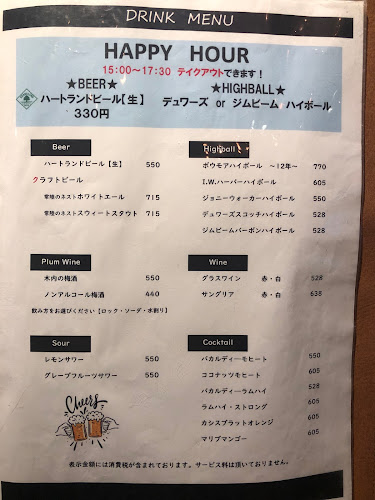 DRINK MENU
HAPPY HOUR
15:00～17:30 テイクアウトできます！
★BEER★
ハートランドビール【生】
330円
★HIGHBALL★
デュワーズ or ジムビーム ハイボール
Beer
ハートランドビール【生】 550
クラフトビール
常陸のネストホワイトエール 715
常陸のネストスウィートスタウト 715
Highball
ボウモアハイボール ～12年～ 770
I.W.ハーパーハイボール 605
ジョニーウォーカーハイボール 550
デュワーズスコッチハイボール 528
ジムビームバーボンハイボール 528
Plum Wine
木内の梅酒 550
ノンアルコール梅酒 440
飲み方をお選びください【ロック・ソーダ・水割り】
Wine
グラスワイン 赤・白 528
サングリア 赤・白 638
Sour
レモンサワー 550
グレープフルーツサワー 550
Cocktail
バカルディーモヒート 550
ココナッツモヒート 605
バカルディーラムハイ 528
ラムハイ・ストロング 605
カシスブラットオレンジ 605
マリブマンゴー 605
Cheers
表示金額には消費税が含まれております。サービス料は頂いておりません。